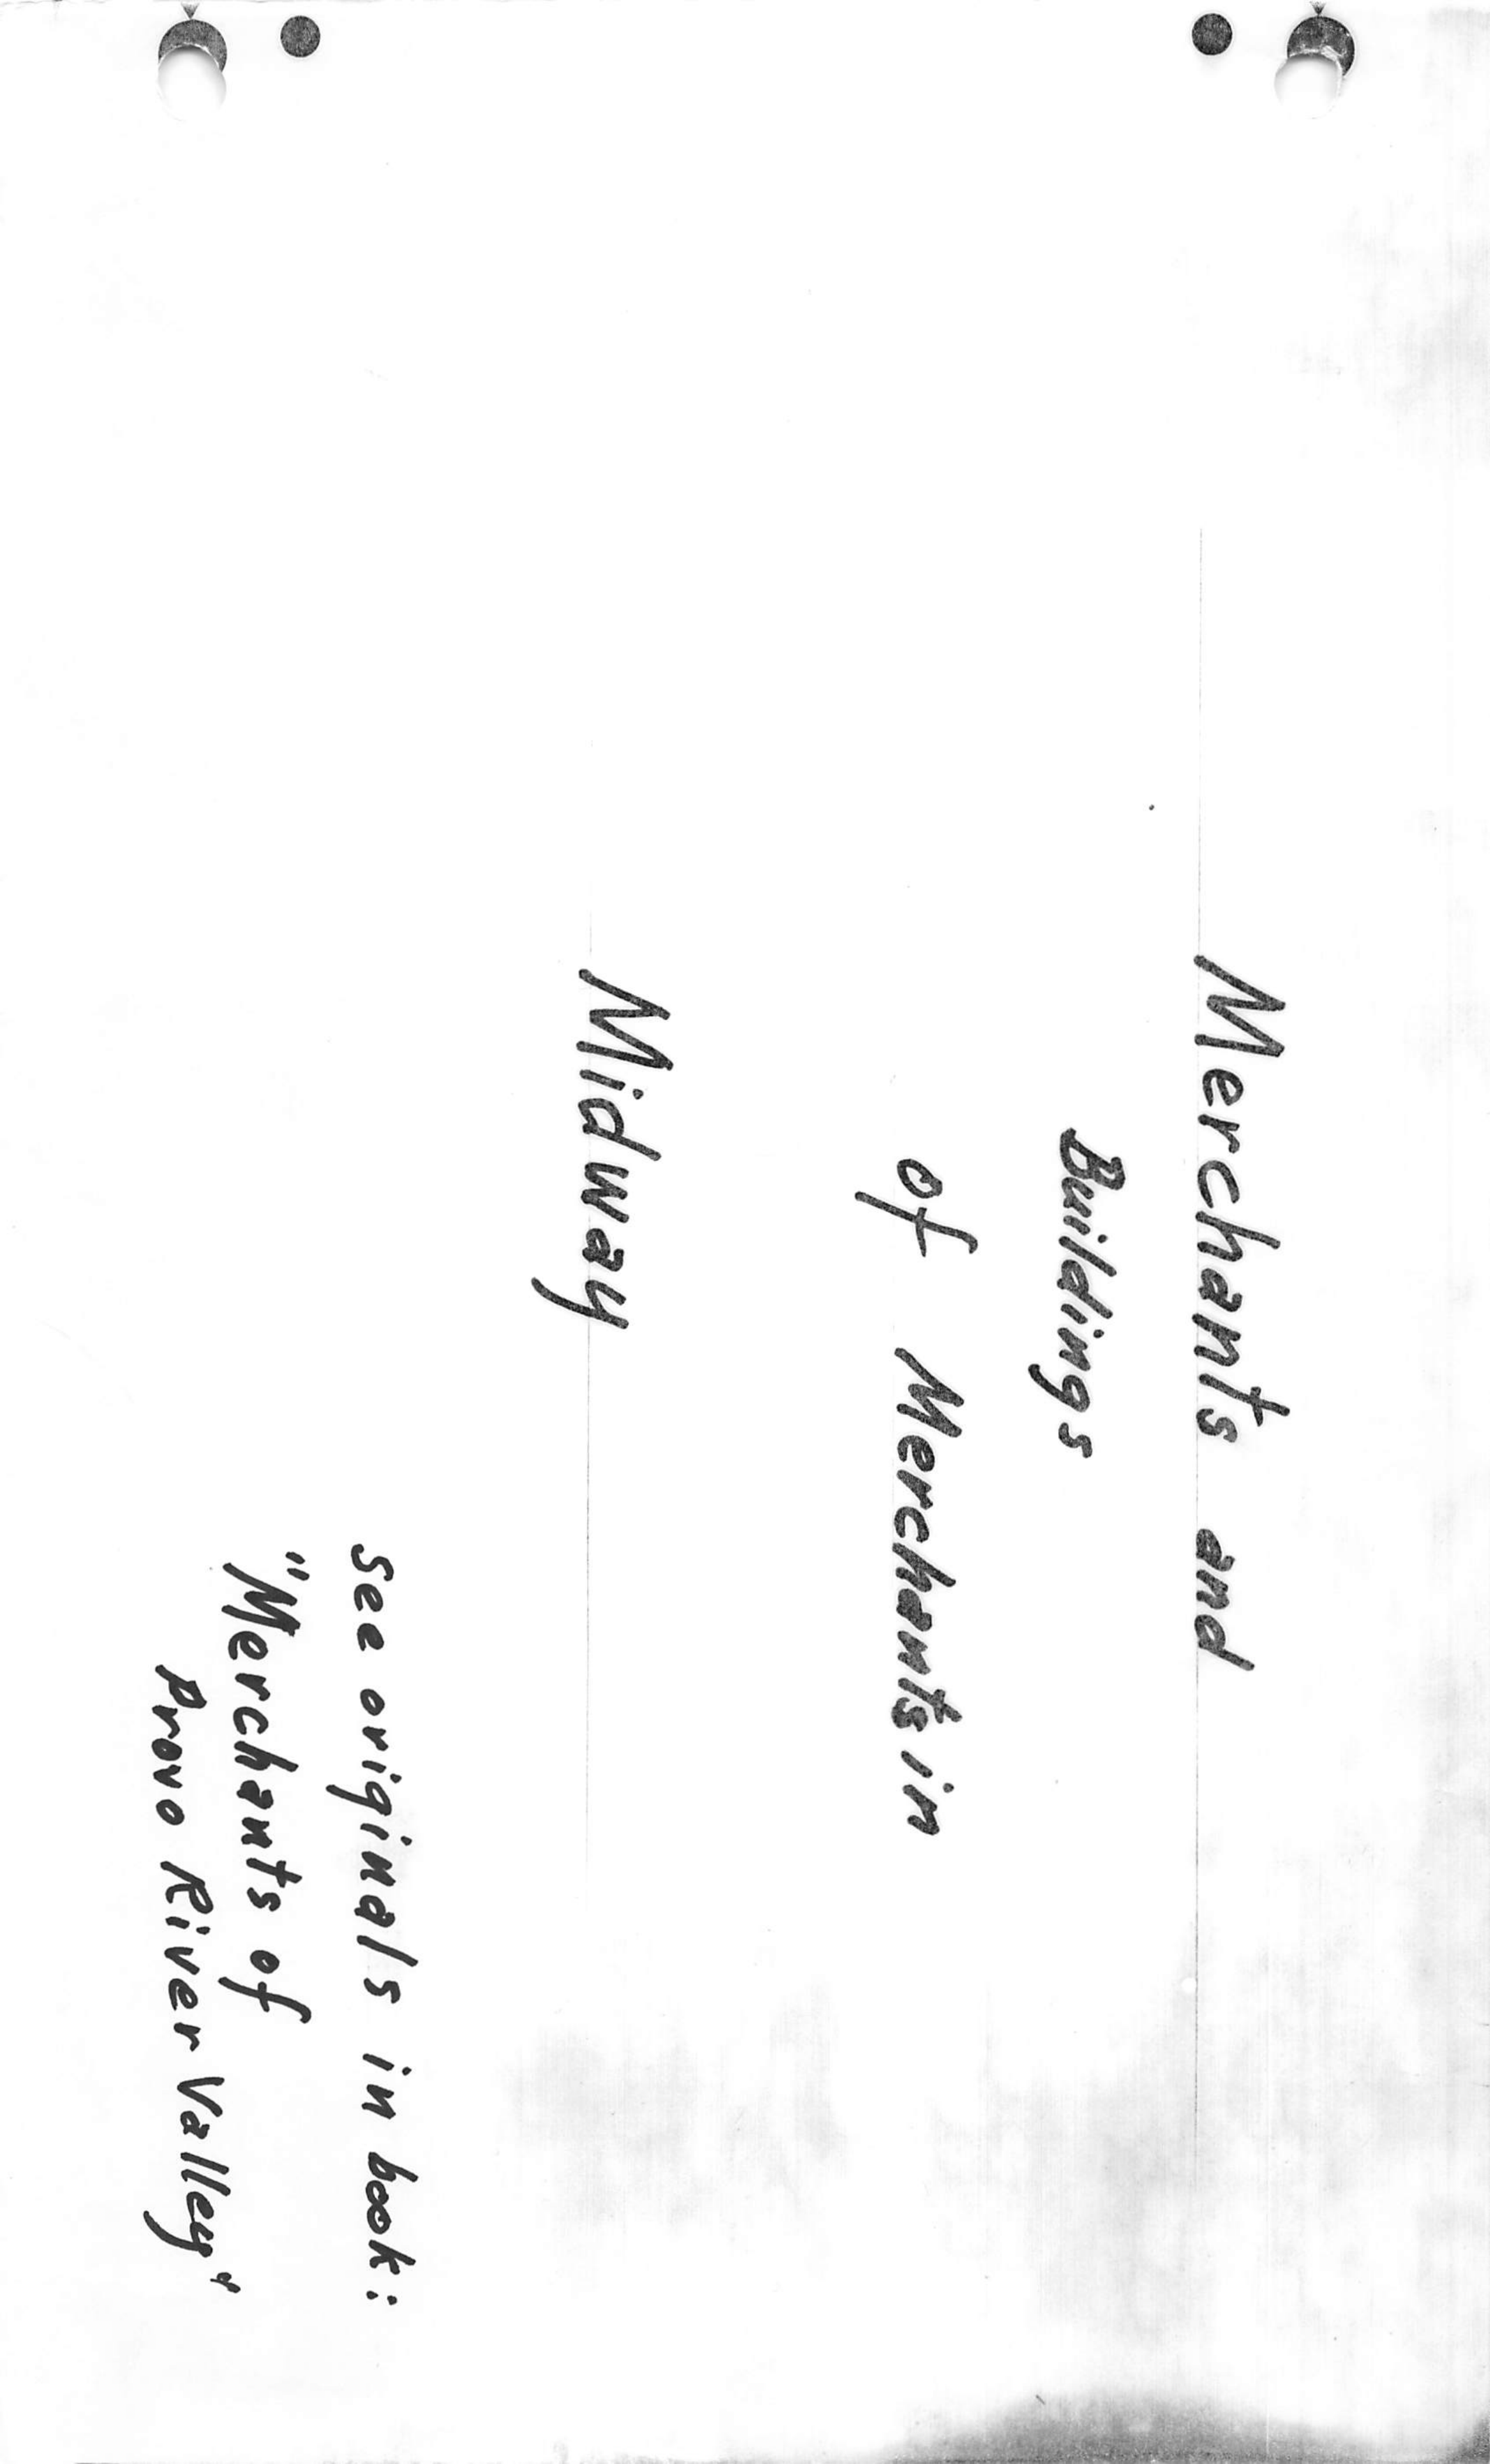 Merchants and
Buildings
of Merchants in
Midway
See originals in book:
"Merchants of
Provo River Valley"